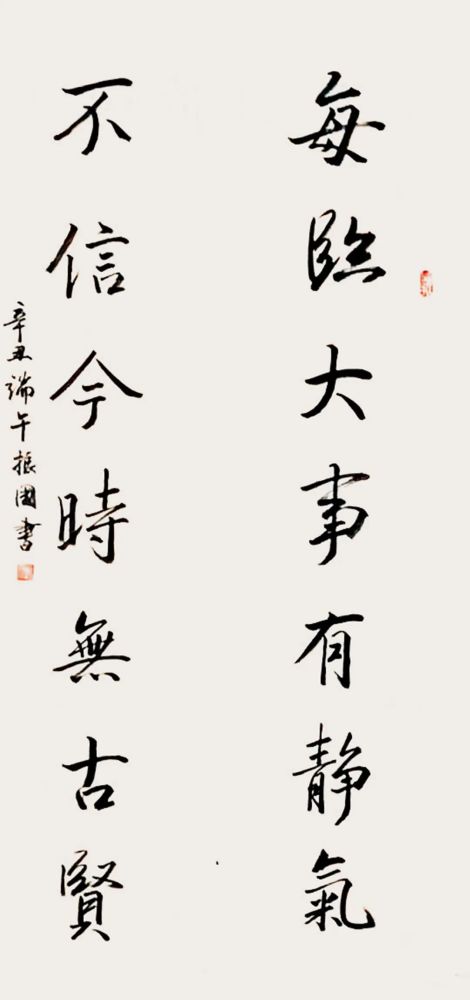 每臨大事有静氣
不信今時無古賢
辛丑端午振國書